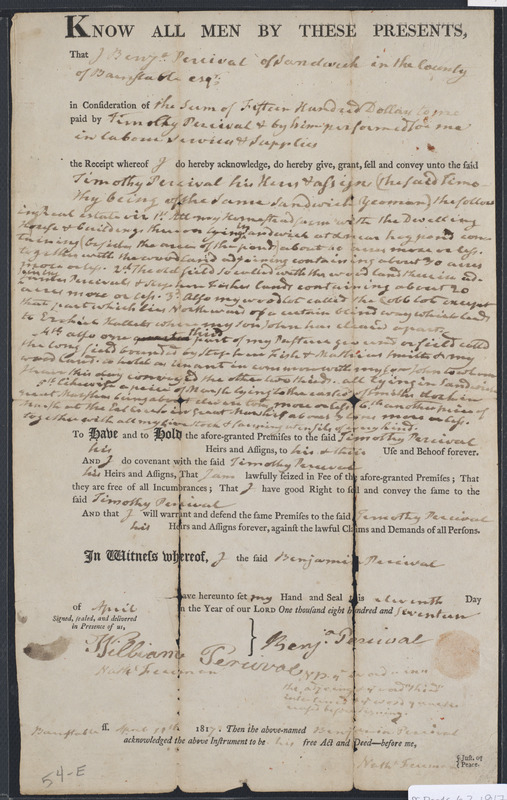 KNOW ALL MEN BY THESE PRESENTS,
That I Benjn. Percival of Sandwich in the County
of Barnstable esqr.
in Conſideration of the Sum of Fifteen Hundred Dollars to me
paid by Timothy Percival & by him performed for me
in labour Services & Supplies
the Receipt whereof I do hereby acknowledge, do hereby give, grant, ſell and convey unto the ſaid
Timothy Percival his Heirs & aſsigns (the said Timo-
thy being of the same Sandwich Yeoman) the follow
ing real estate viz 1st. All my Homestead farm with the Dwelling
House & buildings thereon lying in Sandwich at
taining (besides the area of the pond) about acres more or leſs.
together with the woodland adjoining containing about 30 acres
more or leſs. 2d. The old field so called with the woodland therein ad-
joining Percivals & Fishes land containing about 20
acres more or leſs. 3d. Also my woodlot called the Cobb lot except
that part which lies Northward of a certain blind way which leads
to Ezekiel Halletts where my son John has cleared a part.
4th. also one third part of my Pasture ground or field called
the long field bounded by Stephen Fish & Matthias Smith & my
woodland: is held as tenant in common with my son John to whom
I have this day conveyed the other two thirds. all lying in Sandwich
5th. Likewise a piece of Marsh lying to the eastward of
great Marshes being about eleven acres more or leſs. 6th. another piece of
marsh at the great Marshes acres more or leſs.
together with all my live stock & farming utensils of every kind.
To Have and to Hold the afore-granted Premiſes to the ſaid Timothy Percival
his Heirs and Aſſigns, to his & their Uſe and Behoof forever.
AND I do covenant with the ſaid Timothy Percival
his Heirs and Aſſigns, That I am lawfully ſeized in Fee of the afore-granted Premiſes; That
they are free of all Incumbrances; That I have good Right to ſell and convey the ſame to the
ſaid Timothy Percival
AND that I will warrant and defend the ſame Premiſes to the ſaid Timothy Percival
his Heirs and Aſſigns forever, againſt the lawful Claims and Demands of all Perſons.
In Witneſs whereof, I the ſaid Benjamin Percival
have hereunto ſet my Hand and Seal this eleventh Day
of April in the Year of our LORD One thouſand eight hundred and Seventeen
Signed, ſealed, and delivered
in Preſence of us,
William Percival
Benja. Percival
Nathl. Freeman
Barnstable ſſ. April 11th 1817. Then the above-named Benjamin Percival
acknowledged the above Inſtrument to be his free Act and Deed—before me,
Nathl. Freeman
Juſt. of
Peace.
54-E